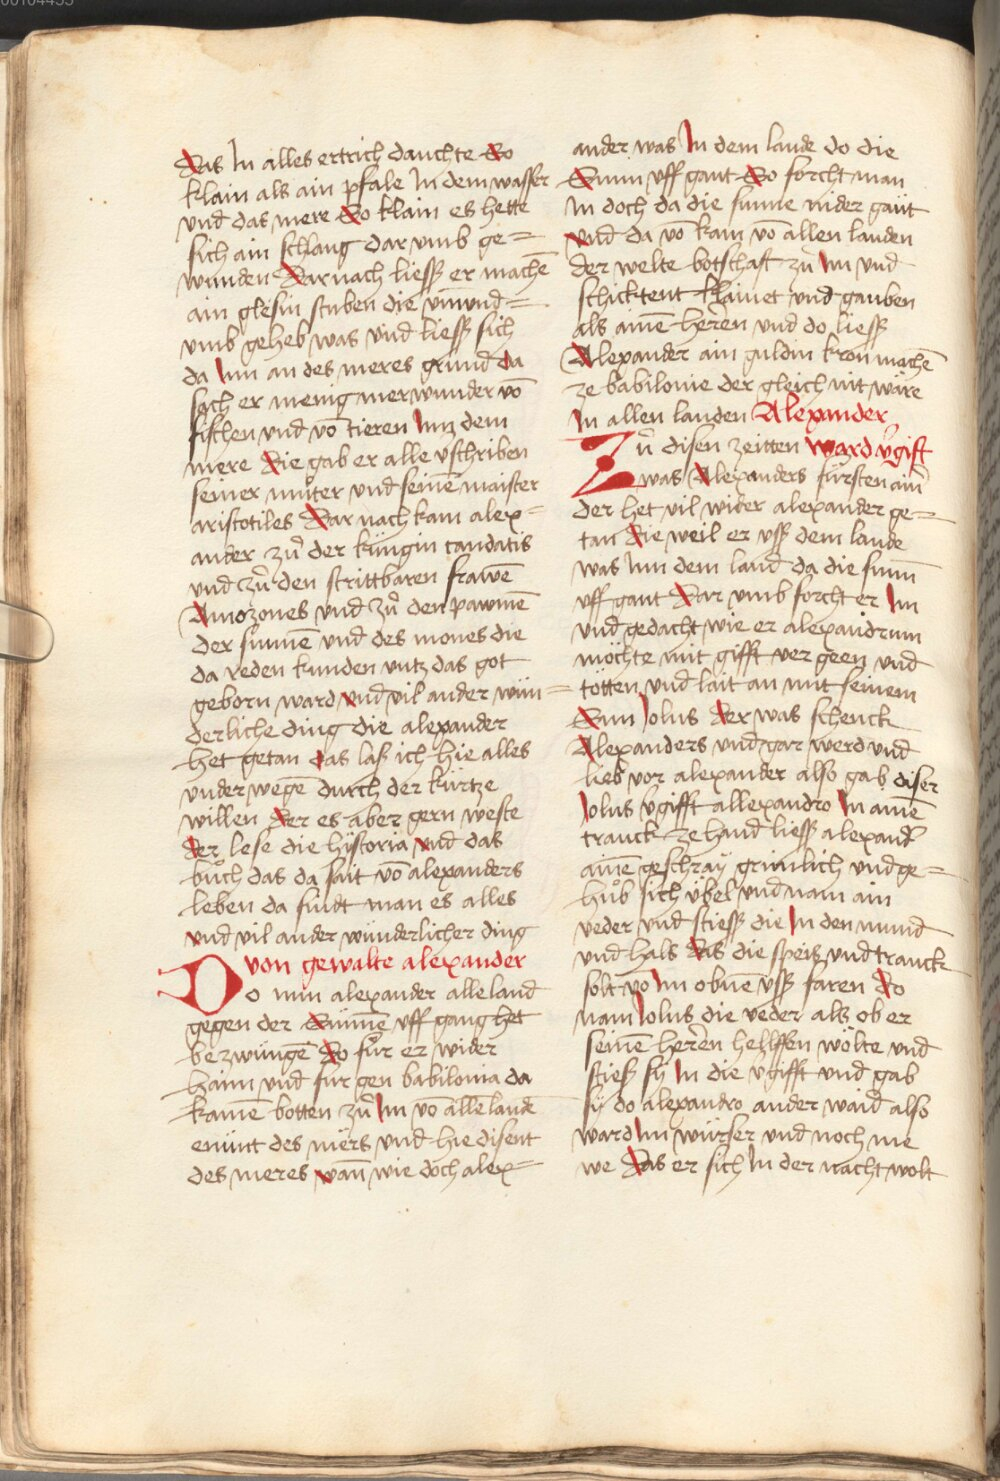 Das In alles ertrich dauchte So
klain als ain pfale In dem wasser
und das mere So klain es hette
sich ain schlang dar umb ge=
wunden Darnach liess er machē
ain glesin stuben die umund=
umb geheb was und liess sich
da Inn an des meres grund da
sach er menig merwunder vō
fischen und vō tieren Inn dem
mere Die gab er alle vschriben
seiner muter und seinē maister
aristotiles Dar nach kam alex=
ander zů der küngin candatis
und zů den strittbaren frawē
Amozones und zů den pawmē
der sunnē und des mones die
da reden kunden untz das got
geborn ward und vil ander wun=
derliche ding die alexander
het getan das lass ich hie alles
under wegē durch der kürtze
willen Der es aber gern weste
der lese die hystoria und das
bůch das da sait vō alexanders
leben da findt man es alles
und vil ander wunderlicher ding
von gewalte alexander
Do nun alexander alle land
gegen der Sunnē uff gang het
bezwungē Do fůr er wider
haim und fur gen babilonia da
kamē botten zů Im vō alle lande
enunt des mērs und hie disent
des meres wañ wie doch alex=
ander was In dem lande do die
Sunn uff gant So forcht man
In doch da die sunne nider gant
und da vo kam vō allen landen
der welte botschaft zů Im und
schicktent klainet und gauben
als ainē heren und do liess
Alexander ain guldin kron machē
ze babilonie der gleich nit wäre
In allen landen Alexander
Zů disen zeitten ward v̄gift
was Alexanders fürsten ain̄
der het vil wider alexander ge=
tan Die weil er uss dem lande
was Inn dem land da die sunn
uff gant Dar umb forcht er Im
und gedacht wie er alexandrum
möchte mit gifft ver geen und
tötten und lait an mit seinem
Sun Jolus Der was schenck
Alexanders und gar werd und
lieb vor alexander also gab diser
Jolus v̄gifft allexandro In ainē
tranck ze hand liess alexandr̄
ainē geschray grimlich und ge=
hůb sich übel und nam ain
veder und stiess die In den mund
und hals Das die speis und tranck
solt vo Im obnē uss faren Do
nam Jolus die veder als ob er
seinē heren helffen wölte und
stiess sy In die v̄gifft und gab
sy do alexandro ander waid also
ward Im würser und noch me
we Das er sich In der nacht wolt